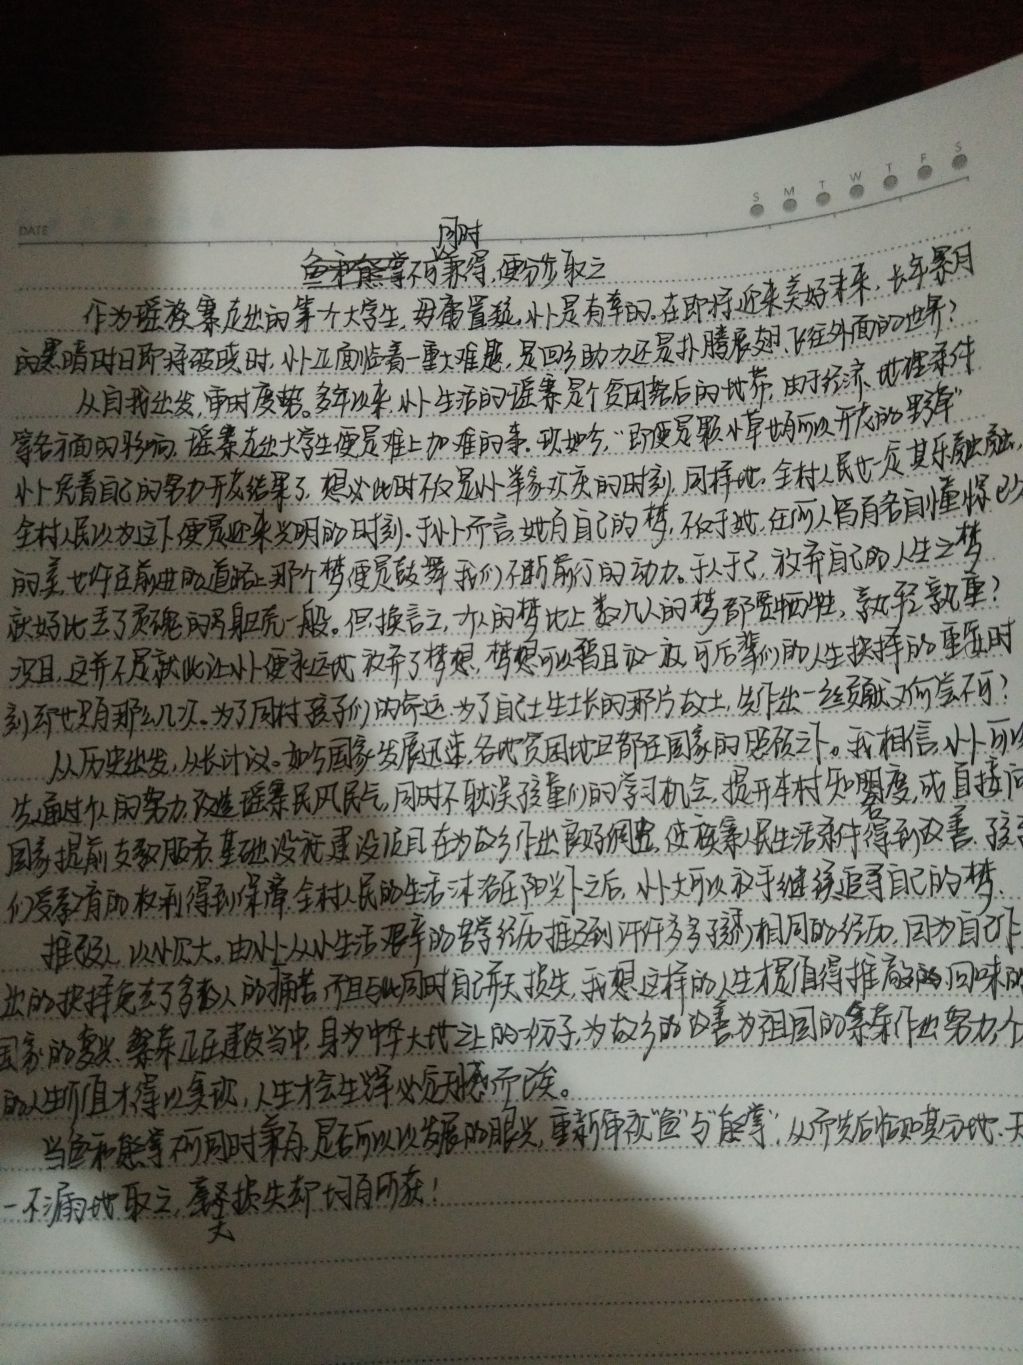 S M T W T F S
DATE
同时
不可兼得,便分步取之
作为瑶族寨走出的第一个大学生,毋庸置疑,小卜是有幸的。在即将迎来美好未来,长年累月
的黑暗时日即将破晓时,小卜正面临着一重大难题,是回乡助力还是扑腾展翅飞往外面的世界?
从自我出发,审时度势。多年以来,小卜生活的瑶寨是个贫困落后的地带,由于经济、地理条件
等各方面的影响,瑶寨走出大学生便是难上加难的事。现如今,“即便是颗小草也有可以开花的野草”
小卜凭着自己的努力开花结果了,想必此时不仅是小卜举家欢庆的时刻,同样地,全村人民也一定其乐融融,
全村人民以为这下便是迎来光明的时刻。于小卜而言,她有自己的梦,不仅于她,任何人皆有各自憧憬已久
的美,也许在前进的道路上那个梦便是鼓舞我们不断前行的动力。于人于己,放弃自己的人生之梦
就好比丢了灵魂的身躯壳一般。但换言之,一个人的梦比上数几人的梦都要牺牲,孰轻孰重?
况且,这并不是就此让小卜便永远地放弃了梦想,梦想可以暂且放一放,可后辈们的人生抉择的重要时
刻却也只有那么几次。为了同村孩子们的命运,为了自己土生土长的那片故土,先作出一丝贡献又何尝不可?
从历史出发,从长计议。如今国家发展迅速,各地贫困地区都在国家的照顾之下。我相信,小卜可以
先通过个人的努力,改造瑶寨民风民气,同时不耽误孩童们的学习机会,提升本村知名度,或直接向
国家提前支教服务、基础设施建设项目,在为故乡作出良好铺垫,使族寨人民生活条件得到改善、孩子
们受教育的权利得到保障,全村人民的生活沐浴在阳光下之后,小卜大可以放手继续追寻自己的梦。
推己及人,以小见大。由小卜从小生活艰辛的苦学经历推及到许许多多孩子们相同的经历,因为自己作
出的抉择免去了多数人的痛苦,而且与此同时自己并无损失,我想这样的人生才是值得推敲的、回味的
国家的复兴、繁荣正在建设当中,身为中华大地之上的一份子,为故乡的改善,为祖国的繁荣作出努力,个
的人生价值才得以实现,人生才会生辉,必定无憾而已矣。
当鱼和熊掌不可同时兼有,是否可以以发展的眼光,重新审视“鱼”与“熊掌”,从而先后临其分地,无
一不漏地取之,毫无损失却均有所获!